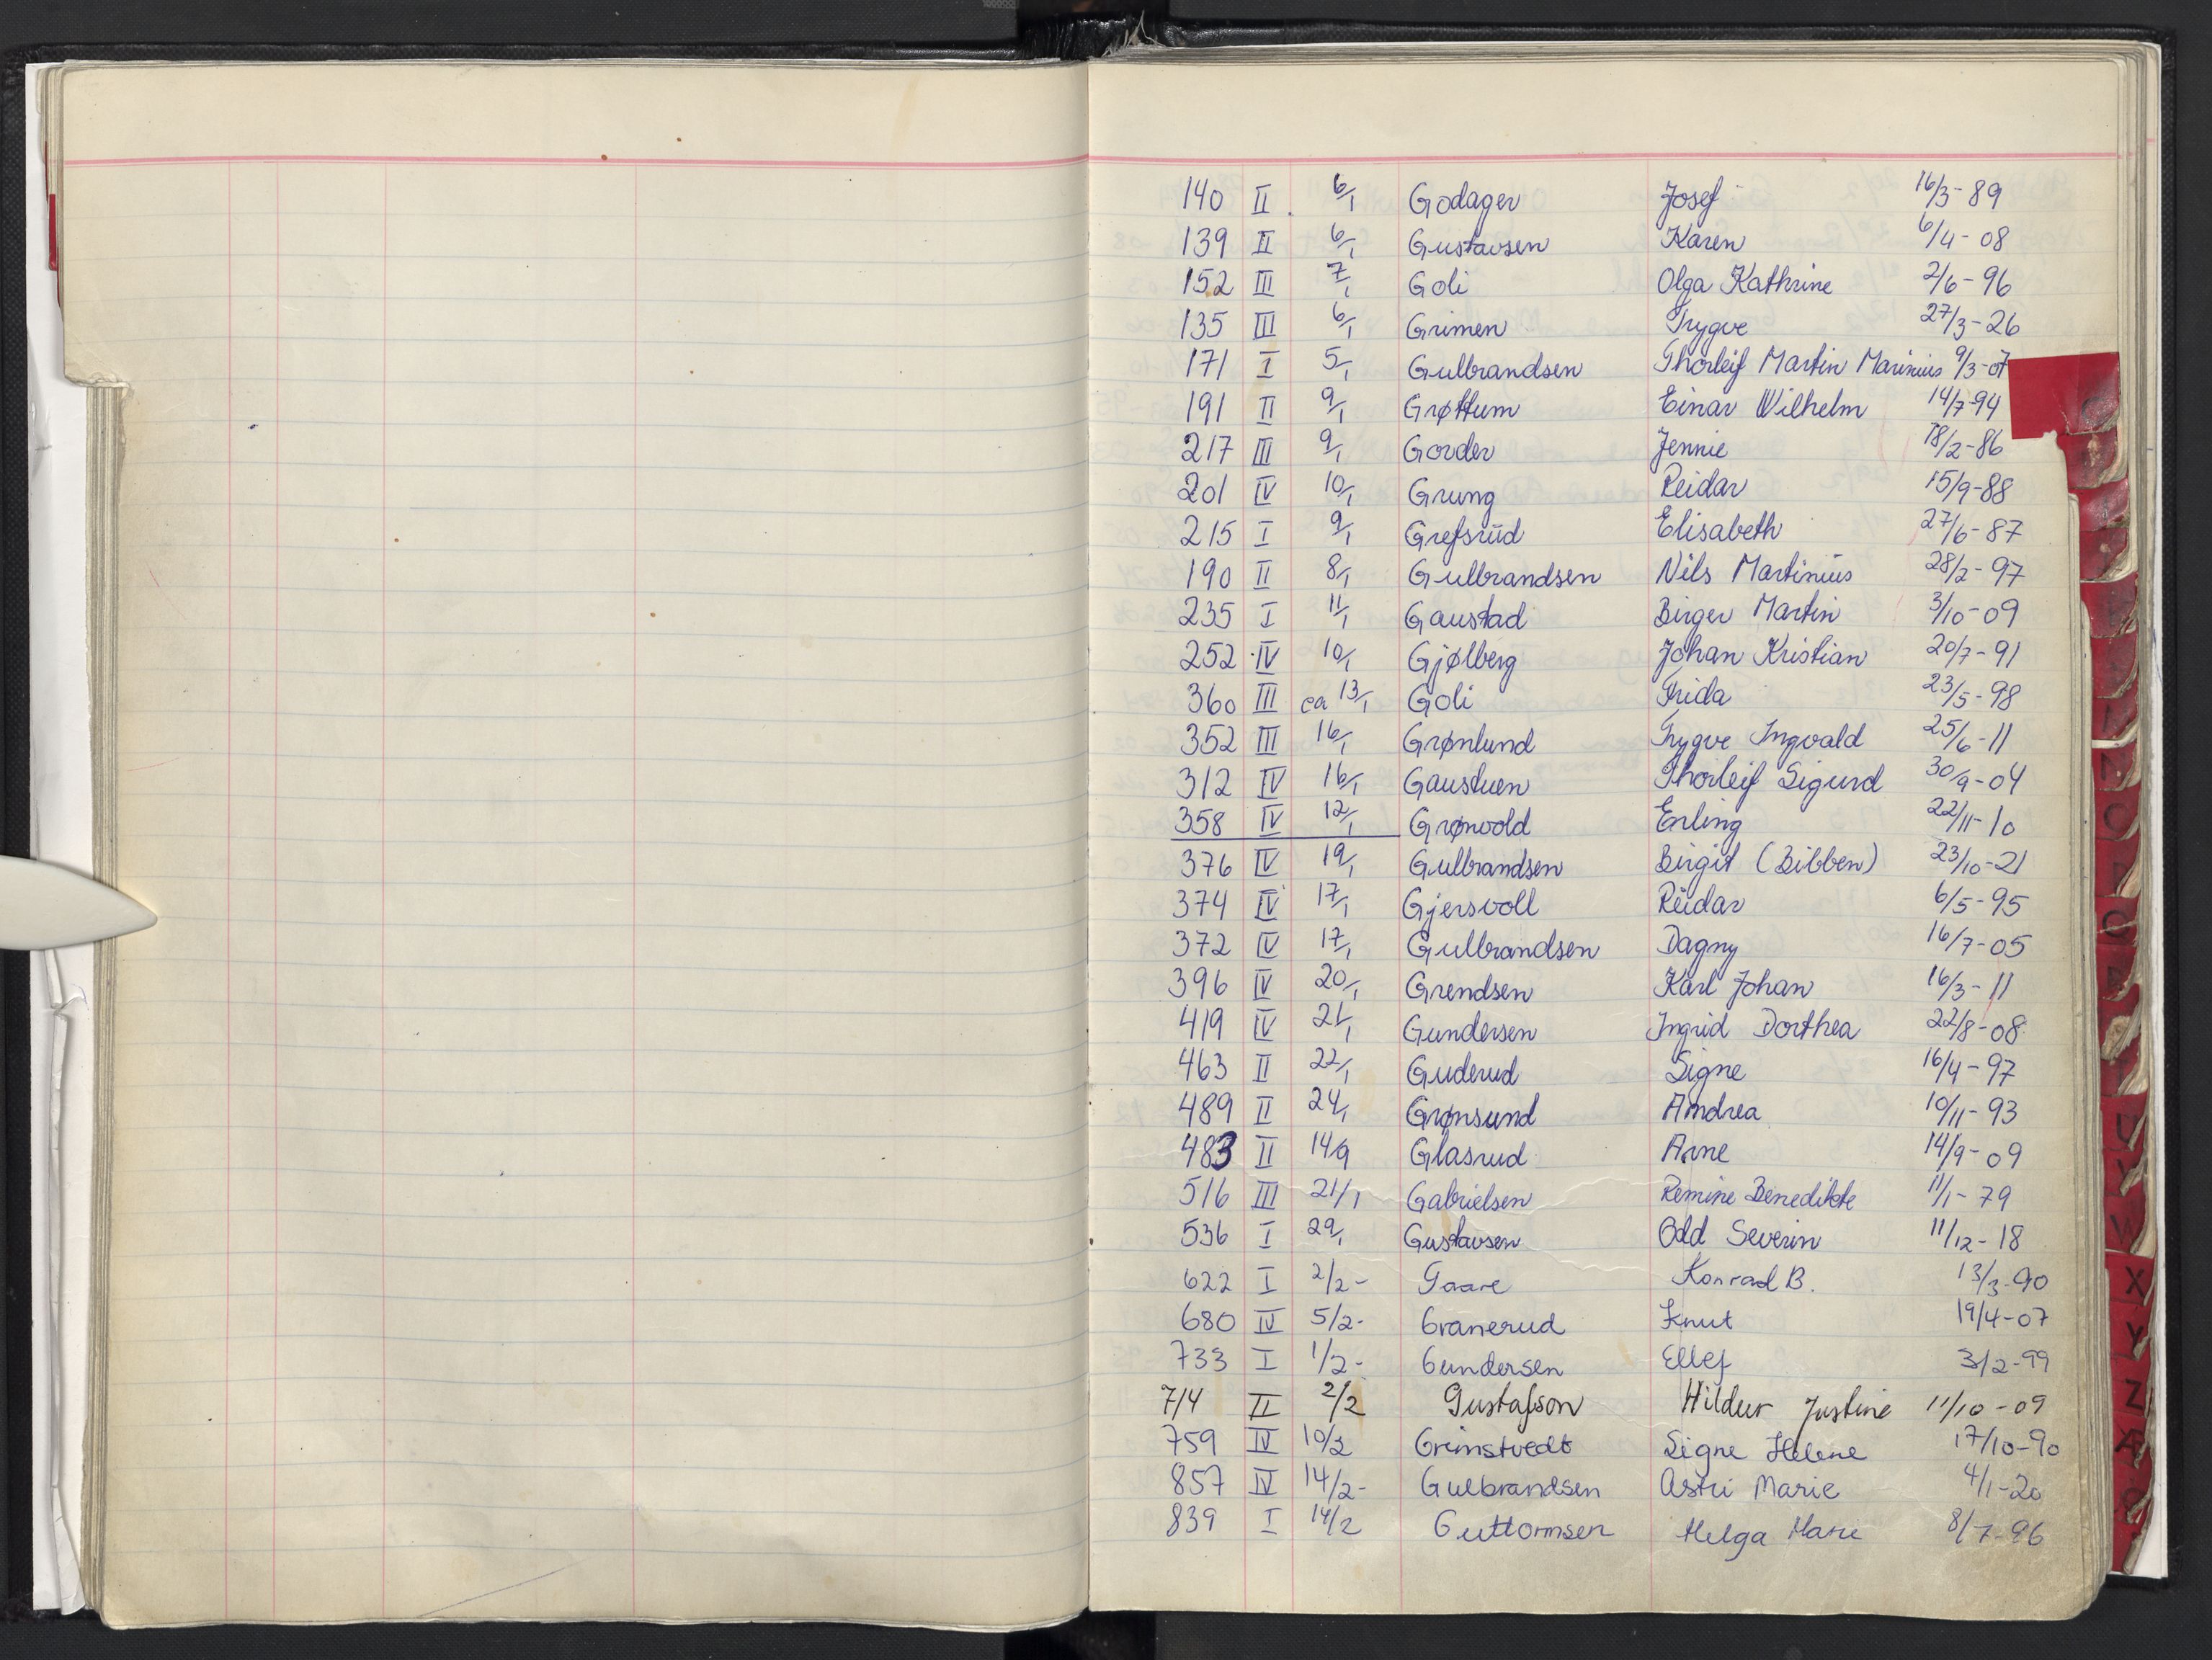 140 II 6/1 Godager Josef 16/3-89
139 II 6/1 Gustavsen Karen 6/4-08
152 III 7/1 Goli Olga Kathrine 2/6-96
135 III 6/1 Grimen Trygve 27/3-26
171 I 5/1 Gulbrandsen Thorleif Martin Marinius 9/3-07
191 II 9/1 Grøttum Einar Wilhelm 14/7-94
217 III 9/1 Gorder Jennie 18/2-86
201 IV 10/1 Grung Reidar 15/9-88
215 I 9/1 Grefsrud Elisabeth 27/6-87
190 II 8/1 Gulbrandsen Nils Martinius 28/2-97
235 I 11/1 Gaustad Birger Martin 3/10-09
252 IV 10/1 Gjølberg Johan Kristian 20/7-91
360 III ca 13/1 Goli Frida 23/5-98
352 III 16/1 Grønlund Trygve Ingvald 25/6-11
312 IV 16/1 Gaustuen Thorleif Sigurd 30/9-04
358 IV 12/1 Grønvold Erling 22/11-10
376 IV 19/1 Gulbrandsen Birgit (Bibben) 23/10-21
374 IV 17/1 Gjersvoll Reidar 6/5-95
372 IV 17/1 Gulbrandsen Dagny 16/7-05
396 IV 20/1 Grendsen Karl Johan 16/3-11
419 IV 21/1 Gundersen Ingrid Dorthea 22/8-08
463 II 22/1 Guderud Signe 16/4-97
489 II 24/1 Grønsund Andrea 10/11-93
483 II 14/9 Glasrud Arne 14/9-09
516 III 21/1 Gabrielsen Remine Benedikte 11/1-79
536 I 29/1 Gustavsen Odd Severin 11/12-18
622 I 2/2- Gaare Konrad B. 13/3-90
680 IV 5/2- Granerud Knut 19/4-07
733 I 1/2- Gundersen Ellef 3/2-99
714 II 2/2 Gustafson Hildur Justine 11/10-09
759 IV 10/2 Grimstvedt Signe Helene 17/10-90
857 IV 14/2- Gulbrandsen Astri Marie 4/1-20
839 I 14/2 Guttormsen Helga Marie 8/7-96
O
P
Q
R
U
V
W
X
Y
Z
Æ
Ø